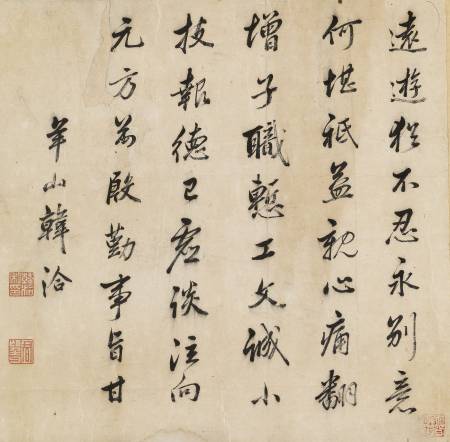 遠遊猶不忍永別意
何堪祗益親心痛翻
增子職慙工文誠小
技報德已虛談泣向
元方殷勤事旨甘
羊山韓洽